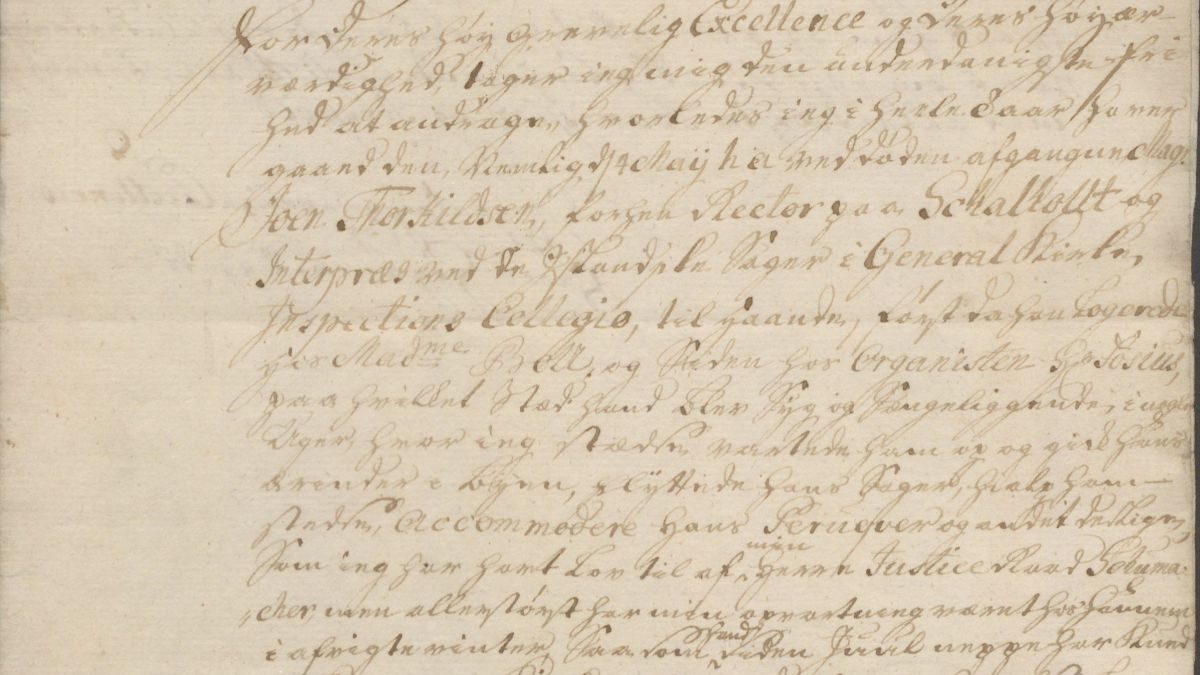 For Deres Høy Grevelig Excellence og Deres Høyær-
værdighed, tager ieg mig den underdanigste fri
hed at andrage, hvorledes ieg i heele 8 aar har vær
gaaed den, Nemlig d. 14 Maij h: a: ved døden afgangne Mag:
Joen Thorkildsen, forhen Rector paa Schalholt og
Interpræs ved de Islandske Sager i General Kirke,
Inspections Collegio, til haande, først da han Logerede
hos Madme Boll, og Siden hos Organisten Hr
paa hvilket Stæd hand blev Syg og Sængeliggende, i nogle
Uger, hvor ieg stædse vartede ham op og gick hans
ærinder i Byen, flyttede hans Sager, hialp ham
stedse, Accommodere hans Peruqver og andet deslige,
Som ieg har havt Lov til af min Herre Justice Raad Schuma-
cher, men allerstørst har min opvartning været hos hannem
i afvigte vinter, Saasom hand Siden Juul neppe har Kund